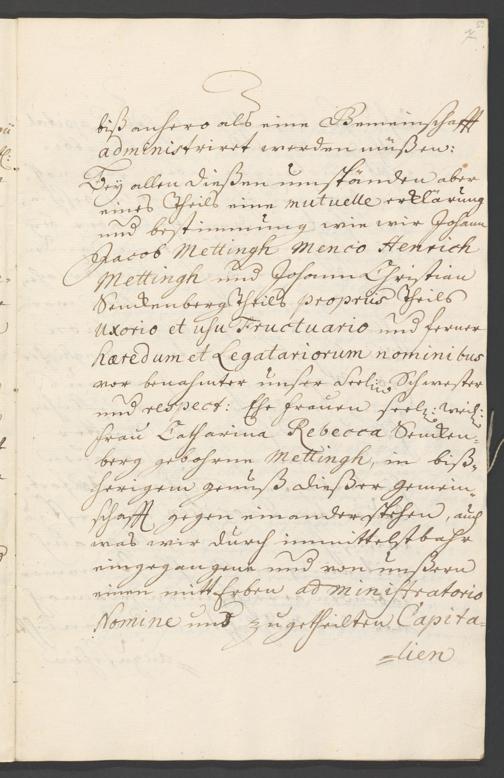 biß anhero als eine Gemeinschafft
administriret werden müßen:
Bey allen dießen umständen aber
eines Theils eine mutuelle erklärung
und bestimmung wie wir Johann
Jacob Mettingh Menco Henrich
Mettingh und Johann Christian
Senckenberg Theils propriis Theils
Uxorio et usu Fructuario und ferner
hæredum et Legatariorum nominibus
vor benahmter unser Seel: Schwester
und respect: Ehe frauen seel:
frau Catharina Rebecca Sencken-
berg gebohrne Mettingh, in biß-
herigem genuß dießer gemein-
schafft gegen einander stehen, auch
was wir durch immittelst bahr
eingegangene und von unßern
einen mitt Erben administratorio
Nomine uns zugetheilten Capita-
-lien